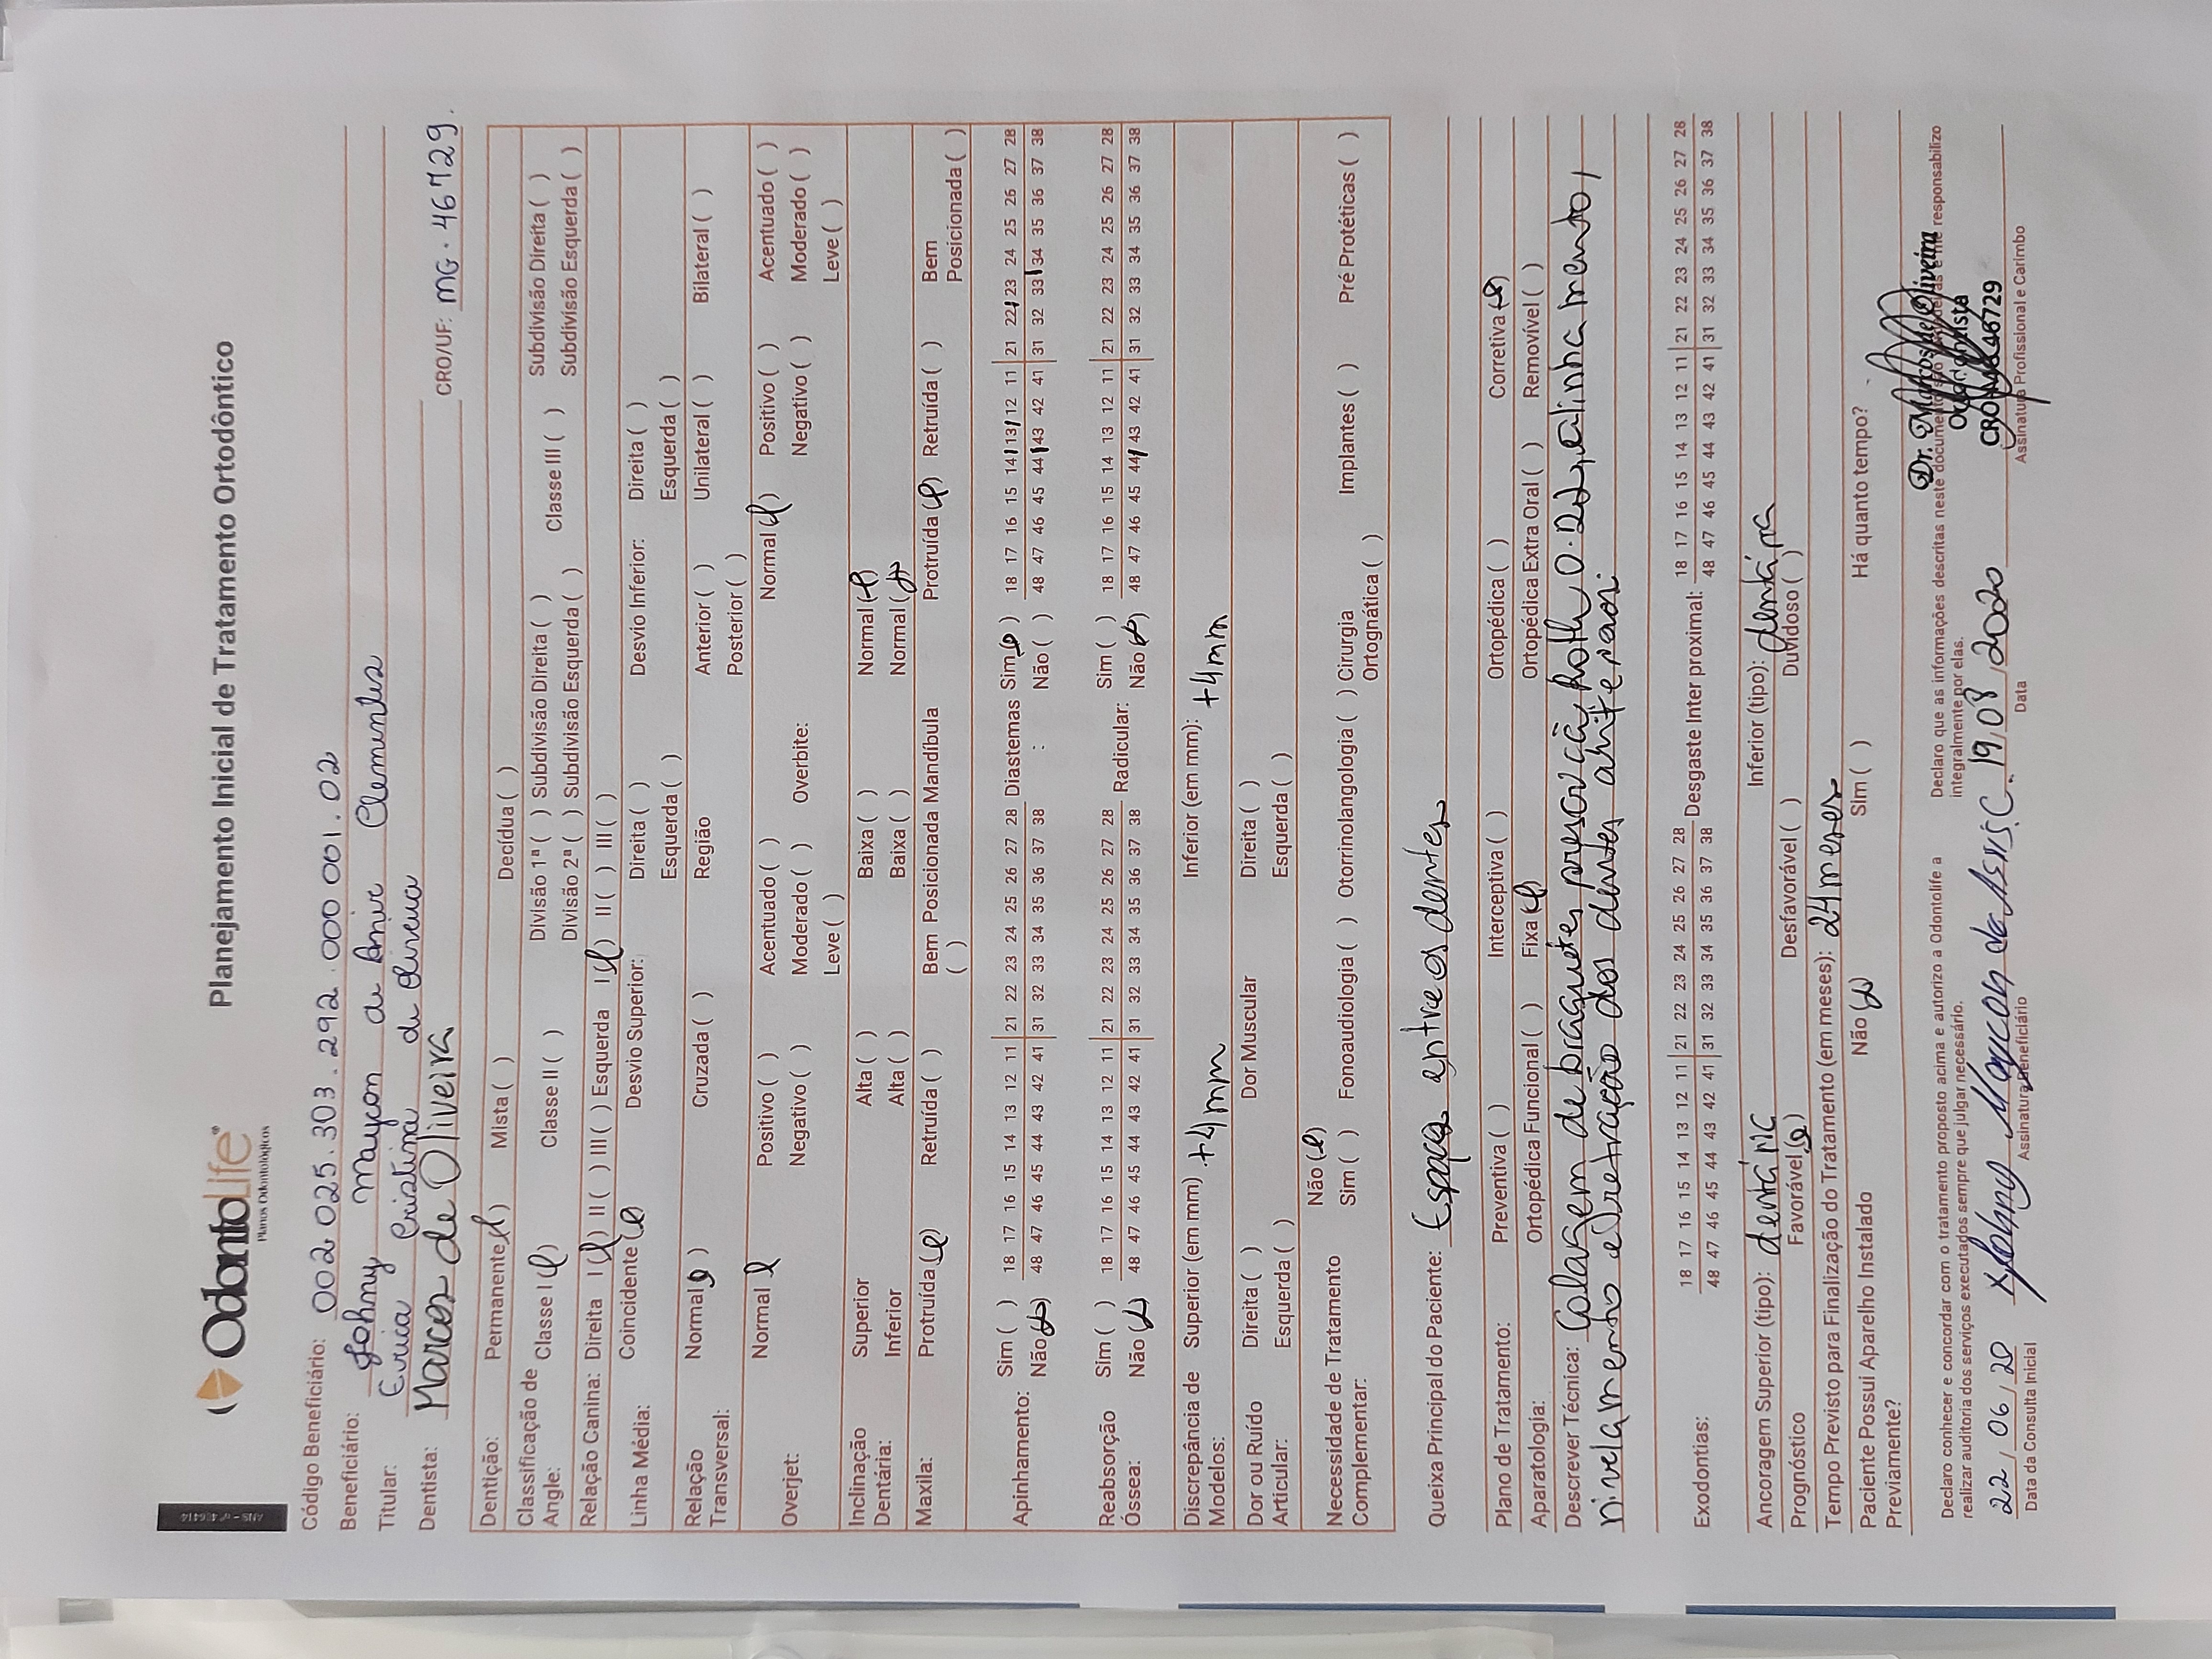 OdontoLife®
Planos Odontológicos
Planejamento Inicial de Tratamento Ortodôntico
Código Beneficiário: 002 025.303.292.000 001.02
Beneficiário: Johnny Maycon de Assis Clementes
Titular: Erica Cristina de Oliveira
Dentista: Marcos de Oliveira CRO/UF: MG. 46729.
Dentição: Permanente (x) Mista ( ) Decídua ( )
Classificação de Angle: Classe I (x) Classe II ( ) Divisão 1ª ( ) Subdivisão Direita ( ) Classe III ( ) Subdivisão Direita ( )
Divisão 2ª ( ) Subdivisão Esquerda ( ) Subdivisão Esquerda ( )
Relação Canina: Direita I (x) II ( ) III ( ) Esquerda I (x) II ( ) III ( )
Linha Média: Coincidente (x) Desvio Superior: Direita ( ) Desvio Inferior: Direita ( )
Esquerda ( ) Esquerda ( )
Relação Transversal: Normal (x) Cruzada ( ) Região Anterior ( ) Unilateral ( ) Bilateral ( )
Posterior ( )
Overjet: Normal (x) Positivo ( ) Acentuado ( ) Overbite: Normal (x) Positivo ( ) Acentuado ( )
Negativo ( ) Moderado ( ) Negativo ( ) Moderado ( )
Leve ( ) Leve ( )
Inclinação Dentária: Superior Alta ( ) Baixa ( ) Normal (x)
Inferior Alta ( ) Baixa ( ) Normal (x)
Maxila: Protruída (x) Retruída ( ) Bem Posicionada ( ) Mandíbula Protruída (x) Retruída ( ) Bem Posicionada ( )
Apinhamento: Sim ( ) 18 17 16 15 14 13 12 11 | 21 22 23 24 25 26 27 28 Diastemas: Sim (x) 18 17 16 15 14/ 13/ 12 11 | 21 22/ 23 24 25 26 27 28
Não (x) 48 47 46 45 44 43 42 41 | 31 32 33 34 35 36 37 38 Não ( ) 48 47 46 45 44/ 43 42 41 | 31 32 33/ 34 35 36 37 38
Reabsorção Óssea: Sim ( ) 18 17 16 15 14 13 12 11 | 21 22 23 24 25 26 27 28 Radicular: Sim ( ) 18 17 16 15 14 13 12 11 | 21 22 23 24 25 26 27 28
Não (x) 48 47 46 45 44 43 42 41 | 31 32 33 34 35 36 37 38 Não (x) 48 47 46 45 44/ 43 42 41 | 31 32 33 34 35 36 37 38
Discrepância de Modelos: Superior (em mm) +4mm Inferior (em mm): +4mm
Dor ou Ruído Articular: Direita ( ) Dor Muscular Direita ( )
Esquerda ( ) Esquerda ( )
Necessidade de Tratamento Complementar: Não (x)
Sim ( ) Fonoaudiologia ( ) Otorrinolangologia ( ) Cirurgia Ortognática ( ) Implantes ( ) Pré Protéticas ( )
Queixa Principal do Paciente: Espaços entre os dentes
Plano de Tratamento: Preventiva ( ) Interceptiva ( ) Ortopédica ( ) Corretiva (x)
Aparatologia: Ortopédica Funcional ( ) Fixa (x) Ortopédica Extra Oral ( ) Removível ( )
Descrever Técnica: Colagem de braquetes prescrição Roth, 0.22, alinhamento,
nivelamento e retração dos dentes
Exodontias: 18 17 16 15 14 13 12 11 | 21 22 23 24 25 26 27 28 Desgaste Inter proximal: 18 17 16 15 14 13 12 11 | 21 22 23 24 25 26 27 28
48 47 46 45 44 43 42 41 | 31 32 33 34 35 36 37 38 48 47 46 45 44 43 42 41 | 31 32 33 34 35 36 37 38
Ancoragem Superior (tipo): dentária Inferior (tipo): dentária
Prognóstico Favorável (x) Desfavorável ( ) Duvidoso ( )
Tempo Previsto para Finalização do Tratamento (em meses): 24 meses
Paciente Possui Aparelho Instalado Previamente? Não (x) Sim ( ) Há quanto tempo?
Declaro conhecer e concordar com o tratamento proposto acima e autorizo a Odontolife a realizar auditoria dos serviços executados sempre que julgar necessário.
Declaro que as informações descritas neste documento são verdadeiras e me responsabilizo integralmente por elas.
Dr. Marcos de Oliveira
Ortodontista
CRO MG 46729
22/06/20 Johnny Maycon de Assis C. 19/08/2020
Data da Consulta Inicial Assinatura Beneficiário Data Assinatura Profissional e Carimbo